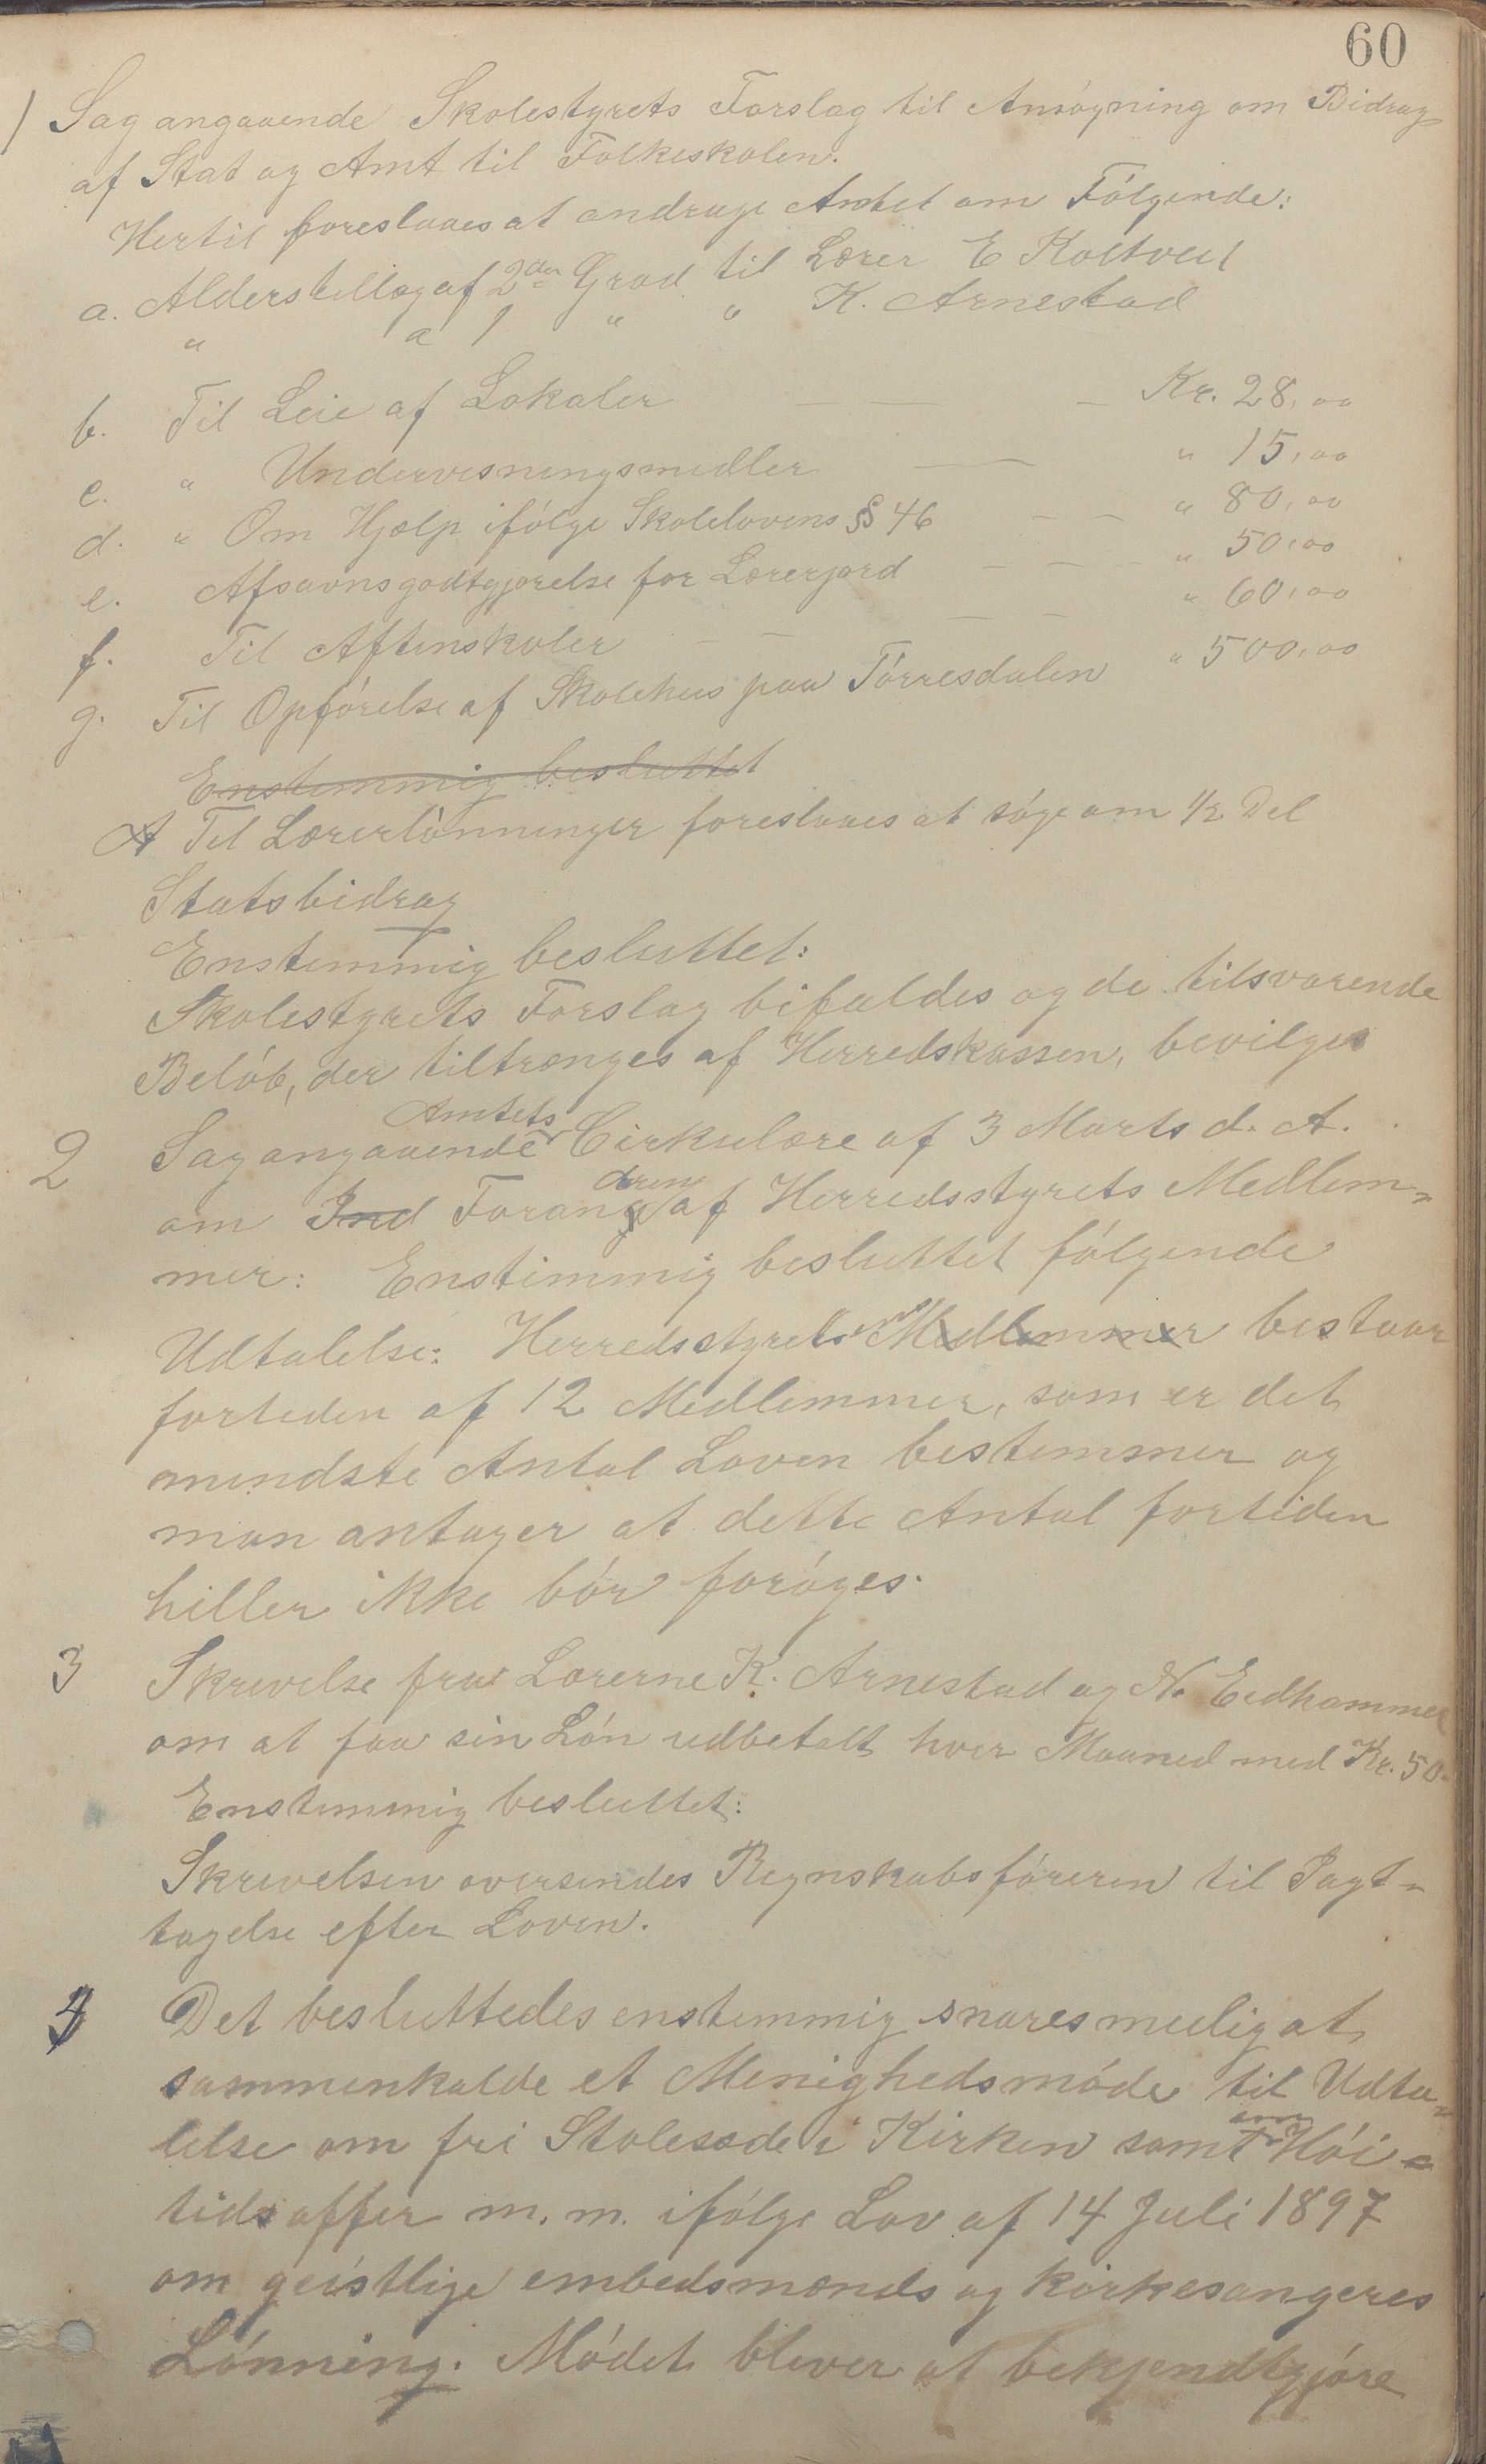 60
1/ Sag angaaende Skolestyrets Forslag til Ansøgning om Bidrag
af Stat og Amt til Folkeskolen.
Hertil foreslaaes at andrage Amtet om Følgende:
a. Alderstillæg af 2den Grad til Lærer E Koltveit
" a 1 " " K. Arnestad
b. Til Leie af Lokaler — — — Kr. 28,00
c. " Undervisningsmidler — " 15,00
d. " Om Hjælp ifølge Skolelovens § 46 — — " 80,00
e. Afsavnsgodtgjørelse for Lærerjord — — — " 50,00
f. Til Aftenskoler — — — — " 60,00
g. Til Opførelse af Skolehus paa Tørresdalen " 500,00
Enstemmig besluttet
Til Lærerlønninger foreslaaes at søge om 1/2 Del
Statsbidrag
Enstemmig besluttet:
Skolestyrets Forslag bifaldes og de tilsvarende
Beløb, der tiltrænges af Herredskassen, bevilges
2 Sag angaaende Amtets Cirkulære af 3 Marts d. A.
om Ind Forandren af Herredsstyrets Medlem-
mer: Enstimmig besluttet følgende
Udtalelse: Herredsstyret Medlemmer bestaar
fortiden af 12 Medlemmer, som er det
mindste Antal Loven bestemmer og
man antager at dette Antal fortiden
hiller ikke bør forøges.
3 Skrivelse fra Lærerne K. Arnestad og N. Eidhammer
om at faa sin Løn udbetalt hver Maaned med Kr. 50.
Enstemmig besluttet:
Skrivelsen oversendes Regnskabsføreren til Iagt-
tagelse efter Loven.
4 Det besluttedes enstemmig snaresmulig at
sammenkalde et Menighedsmøde til Udta-
lelse om fri Stolesæde i Kirken samt om Høi-
tidsoffer m. m. ifølge Lov af 14 Juli 1897
om geistlige embedsmænds og kirkesangeres
Lønning. Mødet bliver at bekjendtgjøre